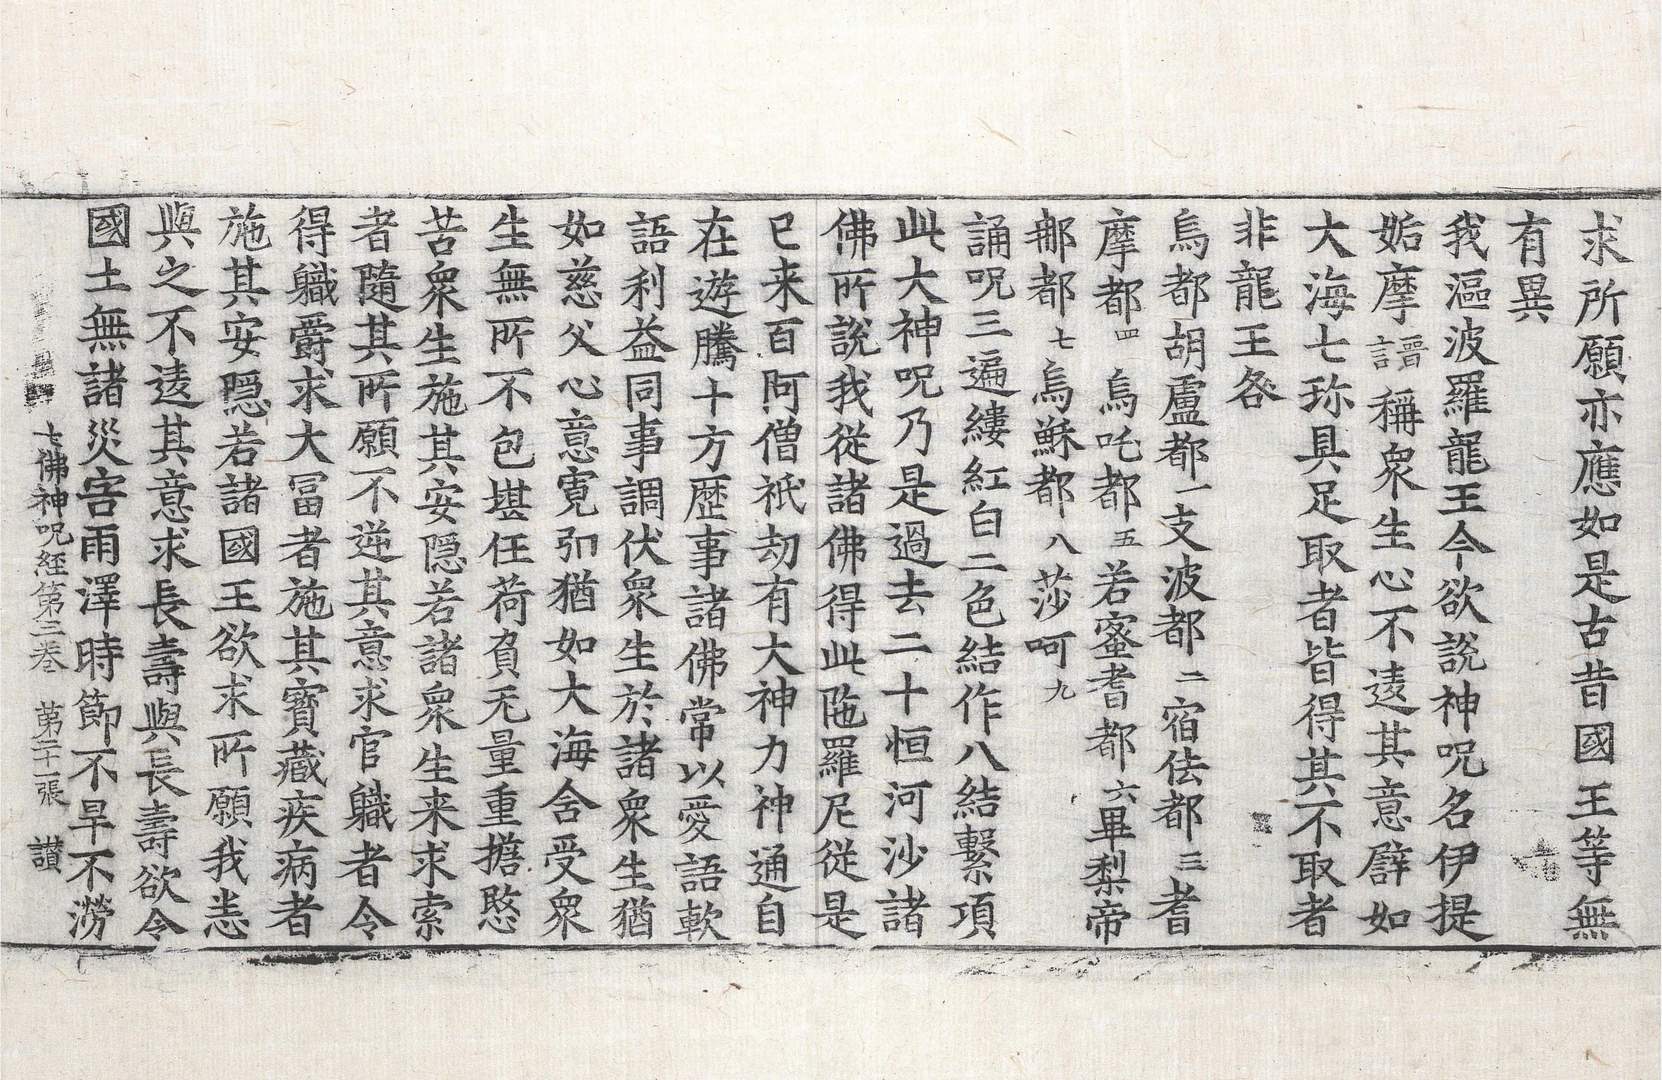 求所願亦應如是古昔國王等無
有異
我漚波羅龍王今欲說神呪名伊提
姤摩 晉言 稱衆生心不逺其意譬如
大海七珎具足取者皆得其不取者
非龍王咎
烏都胡盧都 一 支波都 二 宿佉都 三 耆
摩都 四 烏吒都 五 若蜜耆都 六 畢梨帝
那都 七 烏穌都 八 莎呵 九
誦呪三遍縷紅白二色結作八結繫項
此大神呪乃是過去二十恒河沙諸
佛所說我從諸佛得此陁羅尼從是
已来百阿僧祇劫有大神力神通自
在遊騰十方歷事諸佛常以愛語軟
語利益同事調伏衆生於諸衆生猶
如慈父心意寬弘猶如大海舍受衆
生無所不包堪任荷負无量重擔愍
苦衆生施其安隱若諸衆生来求索
者隨其所願不逆其意求官職者令
得職爵求大冨者施其寶藏疾病者
施其安隱若諸國王欲求所願我悉
與之不逺其意求長壽與長壽欲令
國土無諸災害雨澤時節不旱不澇
七佛神呪經第三卷 第二十一張 讃